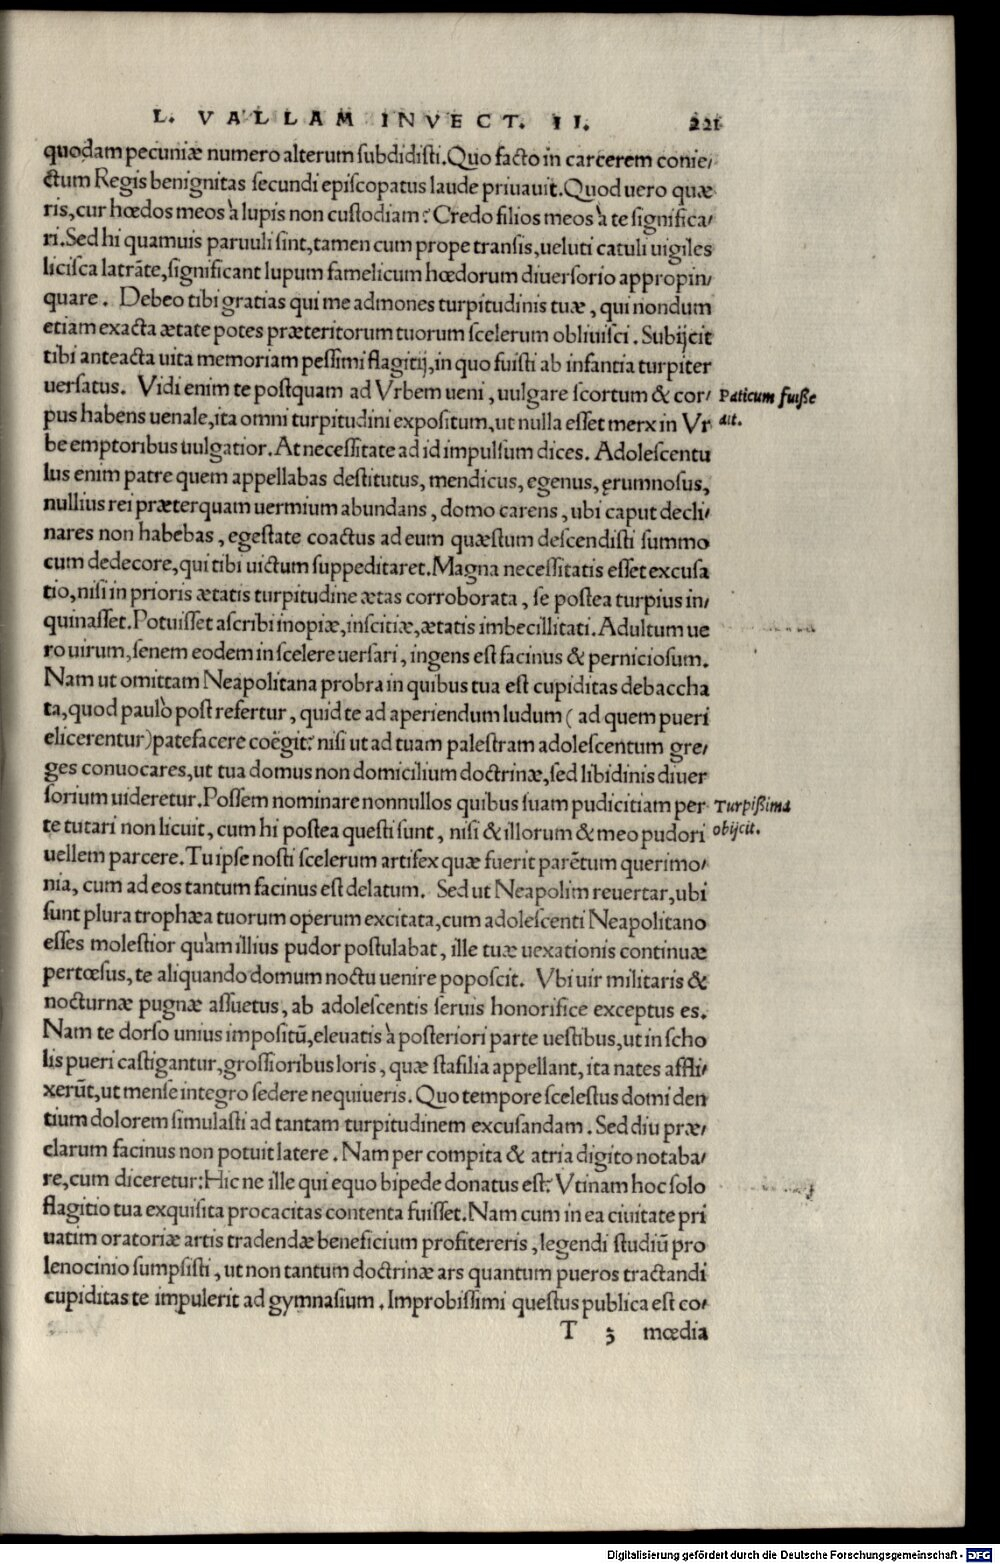 L. VALLAM INVECT. II. 221
quodam pecuniæ numero alterum subdidisti. Quo facto in carcerem conie/
ctum Regis benignitas secundi episcopatus laude priuauit. Quod uero quæ
ris, cur hœdos meos à lupis non custodiam? Credo filios meos à te significa/
ri. Sed hi quamuis paruuli sint, tamen cum prope transis, ueluti catuli uigiles
licisca latrāte, significant lupum famelicum hœdorum diuersorio appropin/
quare. Debeo tibi gratias qui me admones turpitudinis tuæ, qui nondum
etiam exacta ætate potes præteritorum tuorum scelerum obliuisci. Subijcit
tibi anteacta uita memoriam pessimi flagitij, in quo fuisti ab infantia turpiter
uersatus. Vidi enim te postquam ad Vrbem ueni, uulgare scortum & cor/ Paticum fuiße
pus habens uenale, ita omni turpitudini expositum, ut nulla esset merx in Vr ait.
be emptoribus uulgatior. At necessitate ad id impulsum dices. Adolescentu
lus enim patre quem appellabas destitutus, mendicus, egenus, ęrumnosus,
nullius rei præterquam uermium abundans, domo carens, ubi caput decli/
nares non habebas, egestate coactus ad eum quæstum descendisti summo
cum dedecore, qui tibi uictum suppeditaret. Magna necessitatis esset excusa
tio, nisi in prioris ætatis turpitudine ætas corroborata, se postea turpius in/
quinasset. Potuisset ascribi inopiæ, inscitiæ, ætatis imbecillitati. Adultum ue
ro uirum, senem eodem in scelere uersari, ingens est facinus & perniciosum.
Nam ut omittam Neapolitana probra in quibus tua est cupiditas debaccha
ta, quod paulò post refertur, quid te ad aperiendum ludum (ad quem pueri
elicerentur) patefacere coëgit? nisi ut ad tuam palestram adolescentum gre/
ges conuocares, ut tua domus non domicilium doctrinæ, sed libidinis diuer
sorium uideretur. Possem nominare nonnullos quibus suam pudicitiam per Turpißima
te tutari non licuit, cum hi postea questi sunt, nisi & illorum & meo pudori obijcit.
uellem parcere. Tu ipse nosti scelerum artifex quæ fuerit parētum querimo/
nia, cum ad eos tantum facinus est delatum. Sed ut Neapolim reuertar, ubi
sunt plura trophæa tuorum operum excitata, cum adolescenti Neapolitano
esses molestior quàm illius pudor postulabat, ille tuæ uexationis continuæ
pertœsus, te aliquando domum noctu uenire poposcit. Vbi uir militaris &
nocturnæ pugnæ assuetus, ab adolescentis seruis honorifice exceptus es.
Nam te dorso unius impositū, eleuatis à posteriori parte uestibus, ut in scho
lis pueri castigantur, grossioribus loris, quæ stafilia appellant, ita nates affli/
xerūt, ut mense integro sedere nequiueris. Quo tempore scelestus domi den
tium dolorem simulasti ad tantam turpitudinem excusandam. Sed diu præ/
clarum facinus non potuit latere. Nam per compita & atria digito notaba/
re, cum diceretur: Hic ne ille qui equo bipede donatus est? Vtinam hoc solo
flagitio tua exquisita procacitas contenta fuisset. Nam cum in ea ciuitate pri
uatim oratoriæ artis tradendæ beneficium profitereris, legendi studiū pro
lenocinio sumpsisti, ut non tantum doctrinæ ars quantum pueros tractandi
cupiditas te impulerit ad gymnasium. Improbissimi questus publica est co/
T 3 mœdia
Digitalisierung gefördert durch die Deutsche Forschungsgemeinschaft - DFG